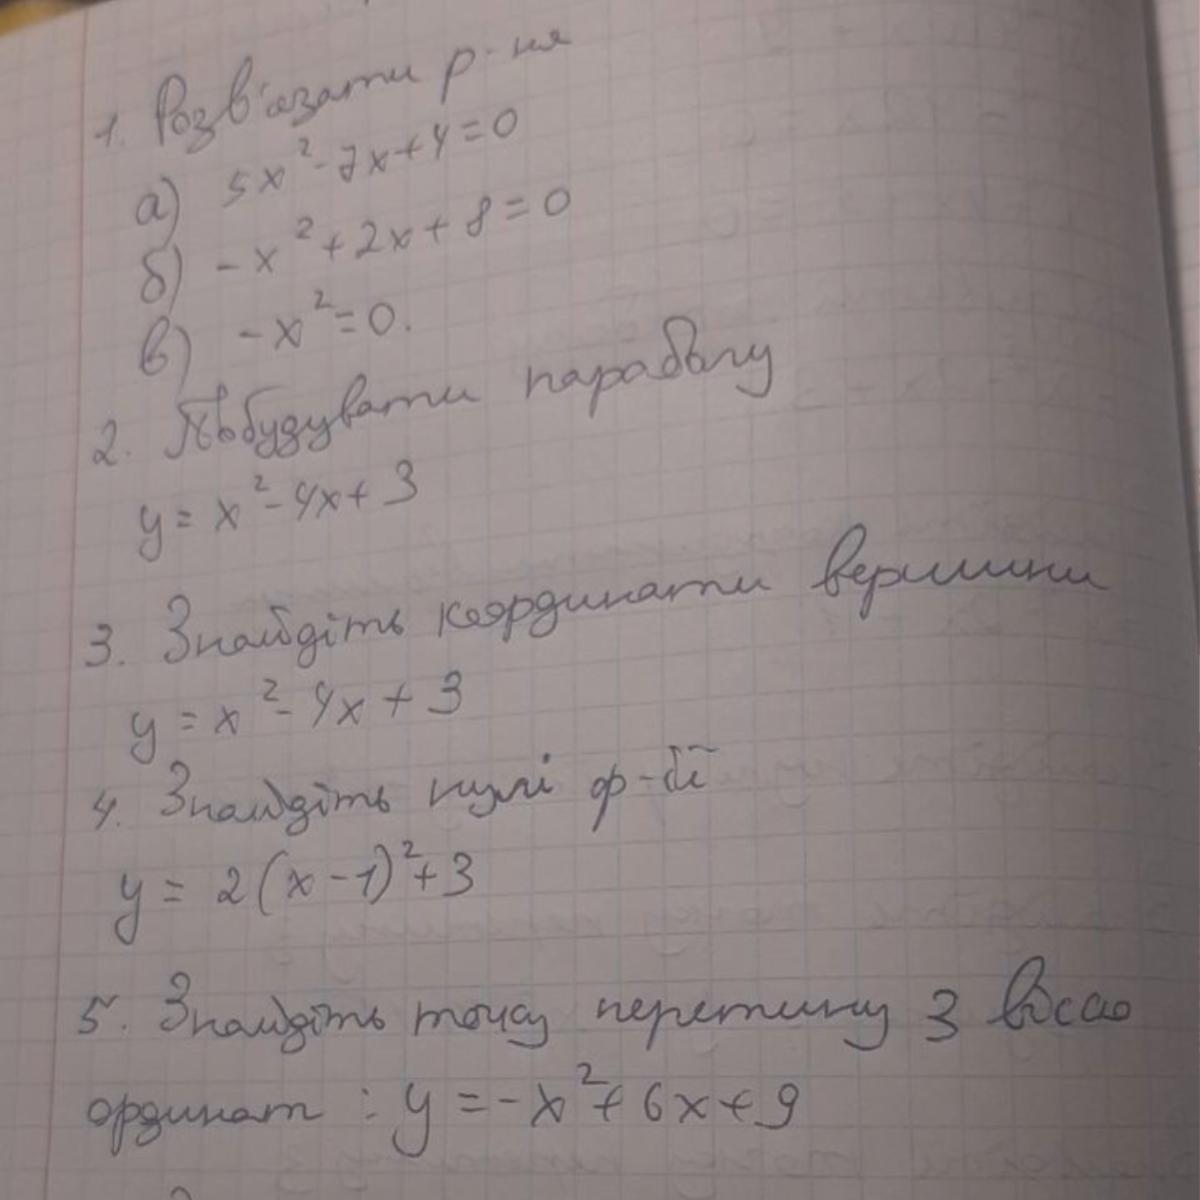 1. Розв'язати р-ня
а) 5x² - 7x + 4 = 0
б) -x² + 2x + 8 = 0
в) -x² = 0.
2. Побудувати параболу
y = x² - 4x + 3
3. Знайдіть координати вершини
y = x² - 4x + 3
4. Знайдіть нулі ф-ії
y = 2(x - 1)² + 3
5. Знайдіть точку перетину з віссю
ординат : y = -x² + 6x + 9